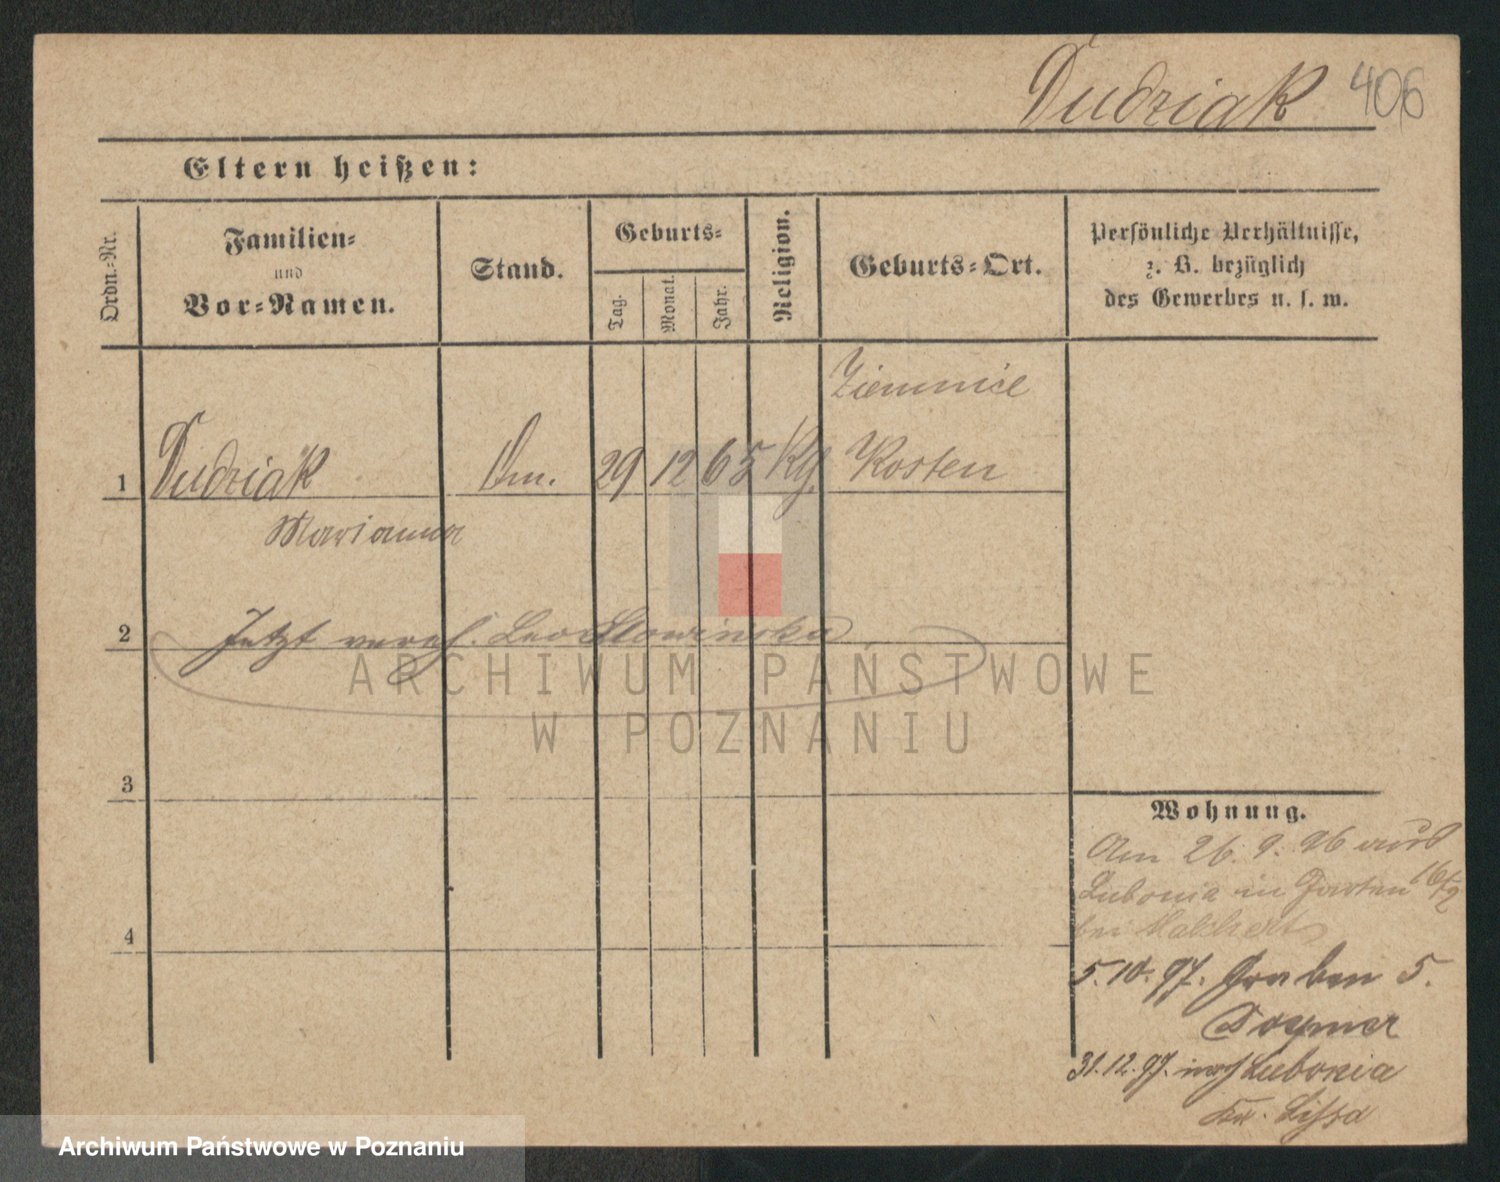 Dudziak 406
Eltern heißen:
Ordn.-Nr.
Familien-
und
Vor-Namen.
Stand.
Geburts-
Tag.
Monat.
Jahr.
Religion.
Geburts-Ort.
Persönliche Verhältnisse,
z. B. bezüglich
des Gewerbes u. s. w.
Ziemnice
1 Dudziak 29 12 65 Kosten
Marianna
2 Jetzt Slowinska
3
4
Wohnung.
Am 26. 9. 96 aus
Lubonia in Garten
bei
5. 10. 97. Graben 5.
31. 12. 97. nach Lubonia
Kr. Lissa
ARCHIWUM PAŃSTWOWE
W POZNANIU
Archiwum Państwowe w Poznaniu